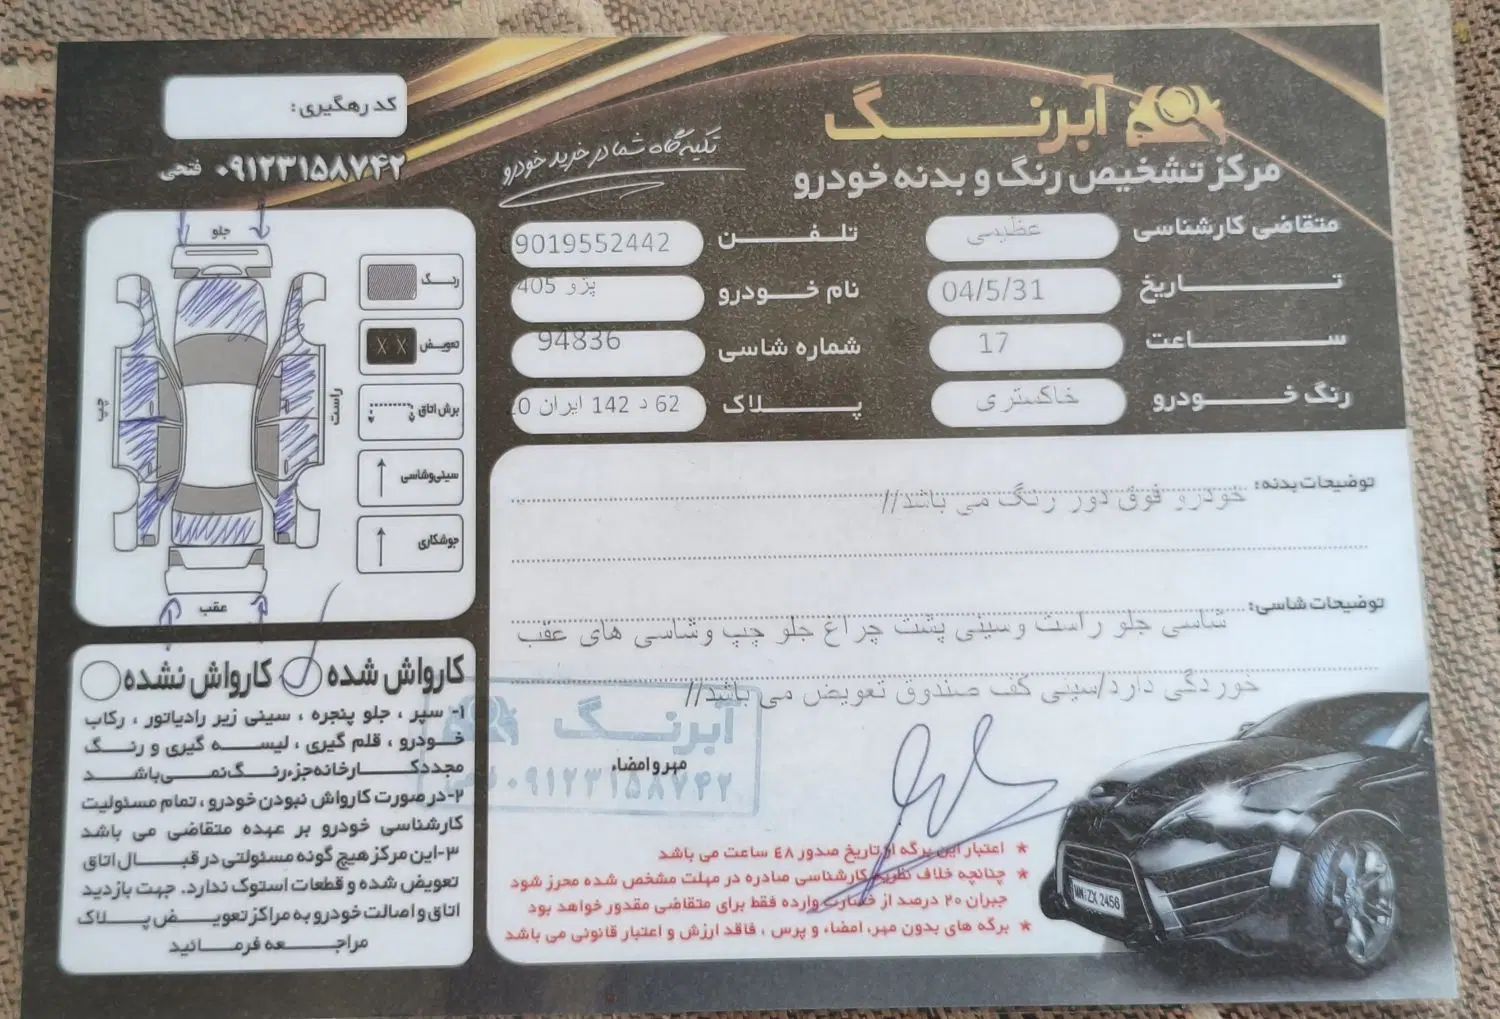 آبرنگ
مرکز تشخیص رنگ و بدنه خودرو
تکیه گاه شما در خرید خودرو
کد رهگیری:
۰۹۱۲۳۱۵۸۷۴۲ فتحی
متقاضی کارشناسی عظیمی
تلفن 9019552442
تاریخ 04/5/31
نام خودرو پژو 405
ساعت 17
شماره شاسی 94836
رنگ خودرو خاکستری
پلاک 62 د 142 ایران
توضیحات بدنه: خودرو فوق دور رنگ می باشد//
توضیحات شاسی: شاسی جلو راست وسینی پشت چراغ جلو چپ وشاسی های عقب
خوردگی دارد/سینی کف صندوق تعویض می باشد//
مهر و امضاء
آبرنگ
۰۹۱۲۳۱۵۸۷۴۲
* اعتبار این برگه از تاریخ صدور ٤٨ ساعت می باشد
* چنانچه خلاف نظریه کارشناسی صادره در مهلت مشخص شده محرز شود
جبران ۲۰ درصد از خسارت وارده فقط برای متقاضی مقدور خواهد بود
* برگه های بدون مهر، امضاء و پرس ، فاقد ارزش و اعتبار قانونی می باشد
جلو
چپ
راست
عقب
رنگ
تعویض
X X
برش اتاق
سینی وشاسی
جوشکاری
کارواش شده
کارواش نشده
۱- سپر ، جلو پنجره ، سینی زیر رادیاتور ، رکاب
خودرو ، قلم گیری ، لیسه گیری و رنگ
مجدد کارخانه جزء رنگ نمی باشد
۲-در صورت کارواش نبودن خودرو ، تمام مسئولیت
کارشناسی خودرو بر عهده متقاضی می باشد
۳-این مرکز هیچ گونه مسئولتی در قبال اتاق
تعویض شده و قطعات استوک ندارد. جهت بازدید
اتاق و اصالت خودرو به مراکز تعویض پلاک
مراجعه فرمائید
WM:ZX 2456